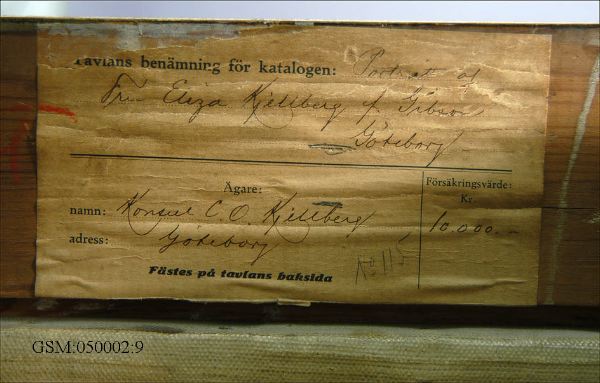 Tavlans benämning för katalogen: Porträtt af
Fru Eliza Kjellberg f. Gibson
Göteborg
Ägare:
namn: Konsul C. O. Kjellberg
adress: Göteborg
Försäkringsvärde:
Kr.
10.000.-
No 115
Fästes på tavlans baksida
GSM:050002:9